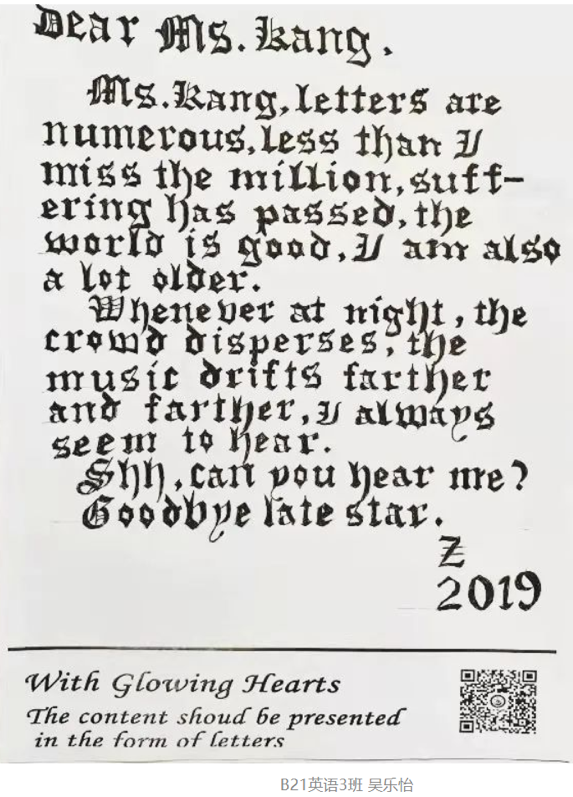 Dear Ms. Kang.
Ms. Kang, letters are
numerous, less than I
miss the million, suff-
ering has passed, the
world is good, I am also
a lot older.
Whenever at night, the
crowd disperses, the
music drifts farther
and farther, I always
seem to hear.
Shh, can you hear me?
Goodbye late star.
Z
2019
With Glowing Hearts
The content shoud be presented
in the form of letters
B21英语3班 吴乐怡